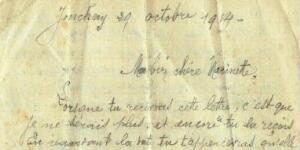 Jonchery 29 octobre 1914 -
Ma bien chère
Lorsque tu recevras cette lettre, c'est que
je ne serais plus, et encore tu la reçois
En tu t'appercevras qu'elle